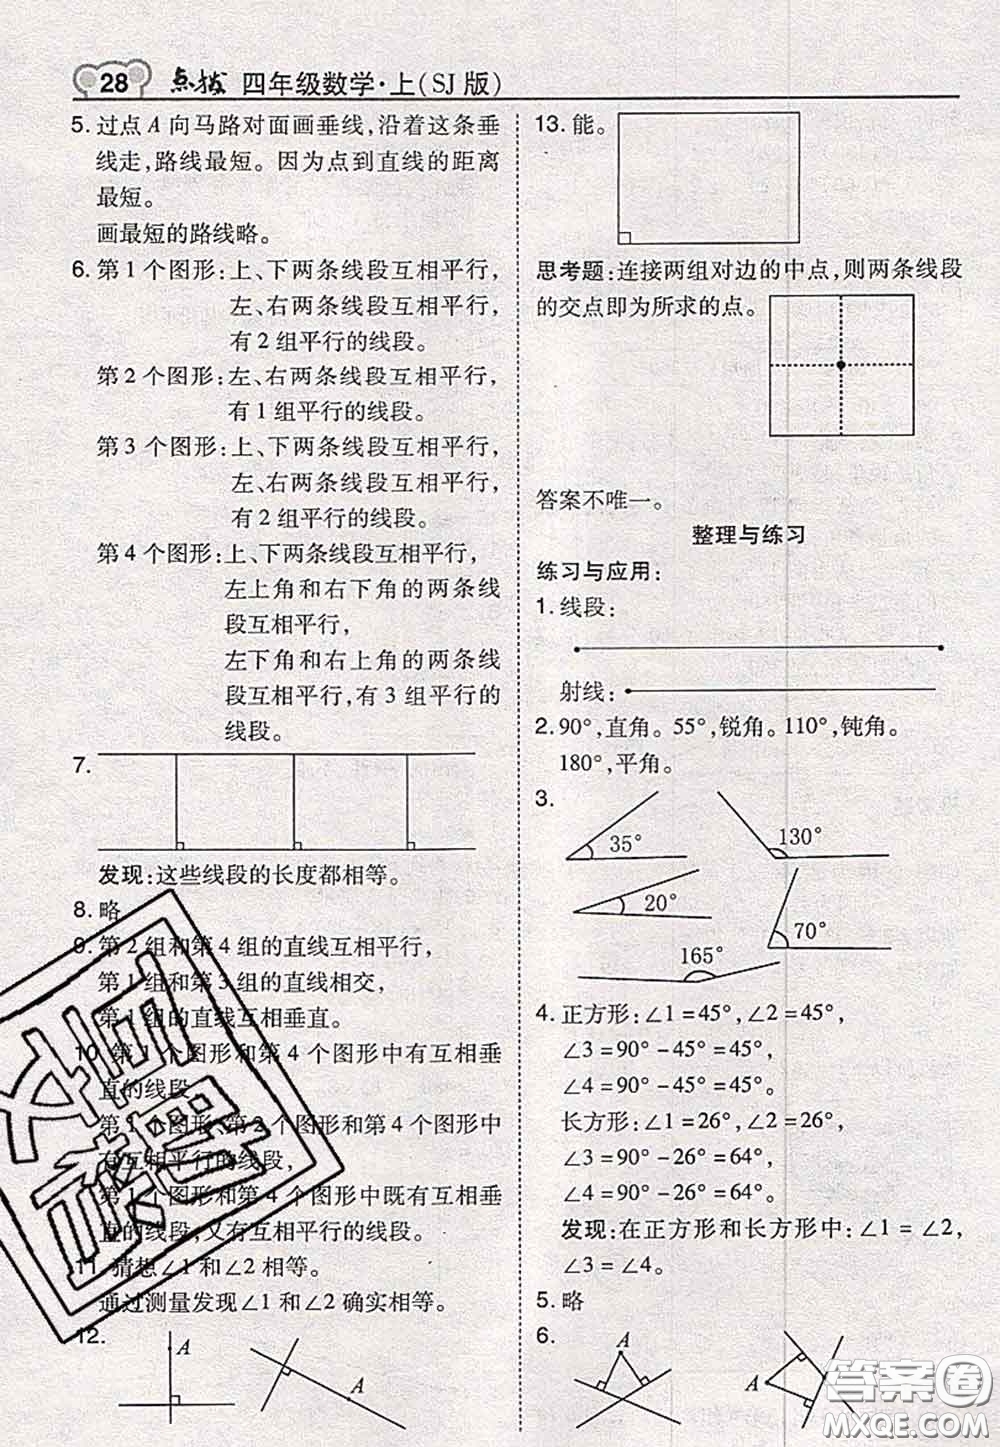 28 点拨 四年级数学·上(SJ版)
5. 过点A向马路对面画垂线,沿着这条垂
线走,路线最短。因为点到直线的距离
最短。
画最短的路线略。
6. 第1个图形:上、下两条线段互相平行,
左、右两条线段互相平行,
有2组平行的线段。
第2个图形:左、右两条线段互相平行,
有1组平行的线段。
第3个图形:上、下两条线段互相平行,
左、右两条线段互相平行,
有2组平行的线段。
第4个图形:上、下两条线段互相平行,
左上角和右下角的两条线
段互相平行,
左下角和右上角的两条线
段互相平行,有3组平行的
线段。
7.
发现:这些线段的长度都相等。
8. 略
9. 第2组和第4组的直线互相平行,
第1组和第3组的直线相交,
第1组的直线互相垂直。
10. 第1个图形和第4个图形中有互相垂
直的线段,
第1个图形、第2个图形和第4个图形中
有互相平行的线段,
第1个图形和第4个图形中既有互相垂
直的线段,又有互相平行的线段。
11. 猜想∠1和∠2相等。
通过测量发现∠1和∠2确实相等。
12.
A
A
13. 能。
思考题:连接两组对边的中点,则两条线段
的交点即为所求的点。
答案不唯一。
整理与练习
练习与应用:
1. 线段:
射线:
2. 90°,直角。55°,锐角。110°,钝角。
180°,平角。
3.
35°
130°
20°
70°
165°
4. 正方形:∠1=45°,∠2=45°,
∠3=90°-45°=45°,
∠4=90°-45°=45°,
长方形:∠1=26°,∠2=26°,
∠3=90°-26°=64°,
∠4=90°-26°=64°,
发现:在正方形和长方形中:∠1=∠2,
∠3=∠4。
5. 略
6.
A
A
答案圈
MXQE.COM